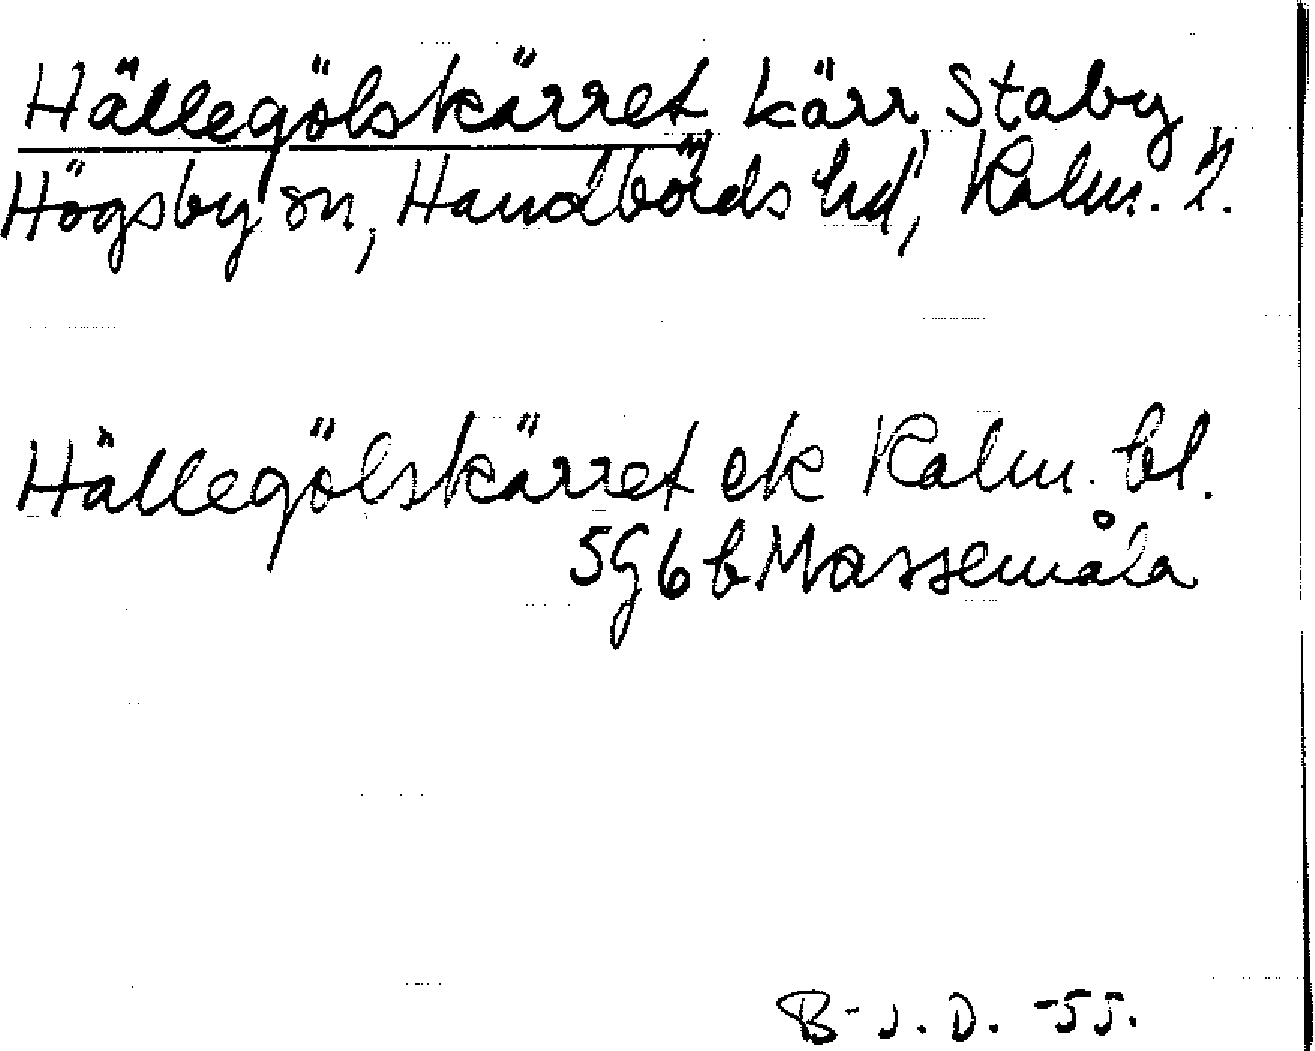 Hällegölskärret kärr, Staby
Högsby sn, Handbörds hd, Kalm. l.
Hällegölskärret ek Kalm. bl.
5G6b Massemåla
B-J.D. -55.